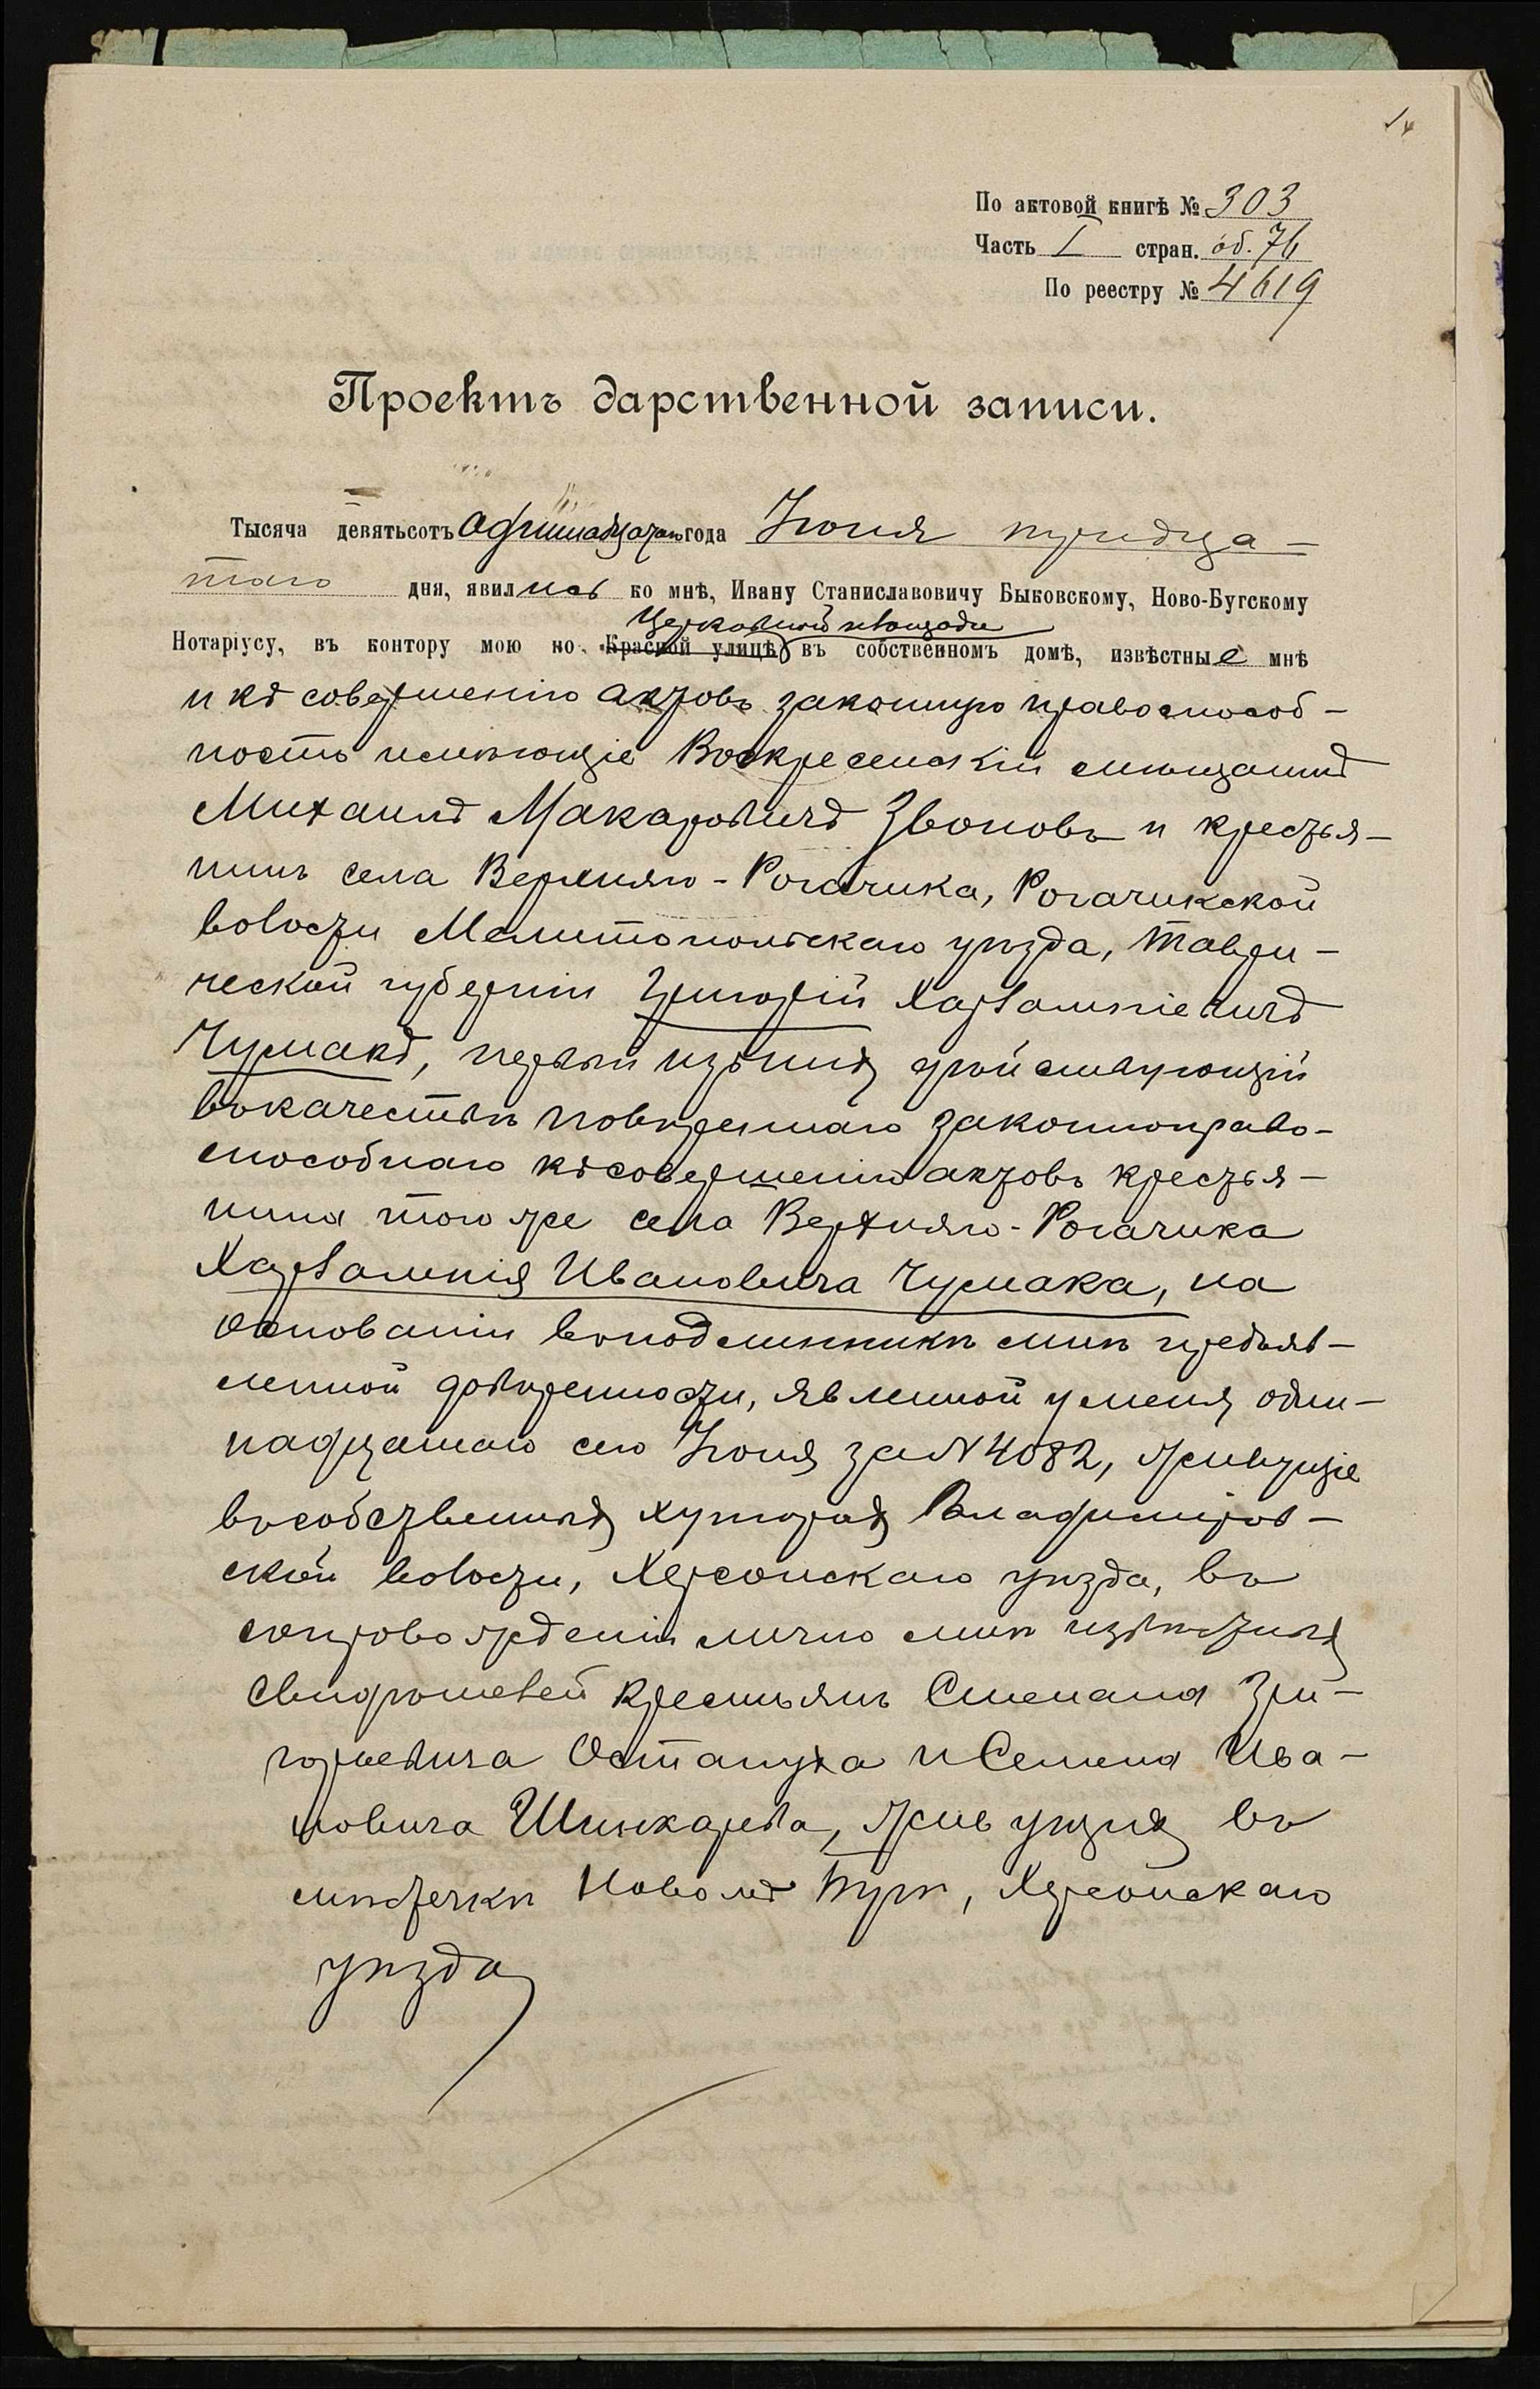 14
По актовой книгѣ № 303
Часть I стран. об. 76
По реестру № 4619
Проектъ дарственной записи.
Тысяча девятьсотъ одиннадцатаго года Іюня тридца-
таго дня, явились ко мнѣ, Ивану Станиславовичу Быковскому, Ново-Бугскому
Церковной площади
Нотаріусу, въ контору мою по Красной улицѣ въ собственномъ домѣ, извѣстные мнѣ
и къ совершенію актовъ законную правоспособ-
ность имѣющіе Воскресенскій мѣщанинъ
Михаилъ Макаровичъ Звоновъ и крестья-
нинъ села Верхняго-Рогачика, Рогачикской
волости Мелитопольскаго уѣзда, Таври-
ческой губерніи Григорій Харлампіевичъ
Чумакъ, первый изъ нихъ дѣйствующій
въ качествѣ повѣреннаго законноправо-
способнаго къ совершенію актовъ крестья-
нина того же села Верхняго-Рогачика
Харлампія Ивановича Чумака, на
основаніи въ подлинникѣ мнѣ предъяв-
ленной довѣренности, явленной у меня один-
надцатаго сего Іюня за № 4082, живущіе
въ собственныхъ хуторахъ Владимиров-
ской волости, Херсонскаго уѣзда, въ
сопровожденіи лично мнѣ извѣстныхъ
свидѣтелей крестьянъ Степана Гри-
горьевича Остапуха и Семена Ива-
новича Шинкарева, живущихъ въ
мѣстечкѣ Новомъ Бугѣ, Херсонскаго
уѣзда